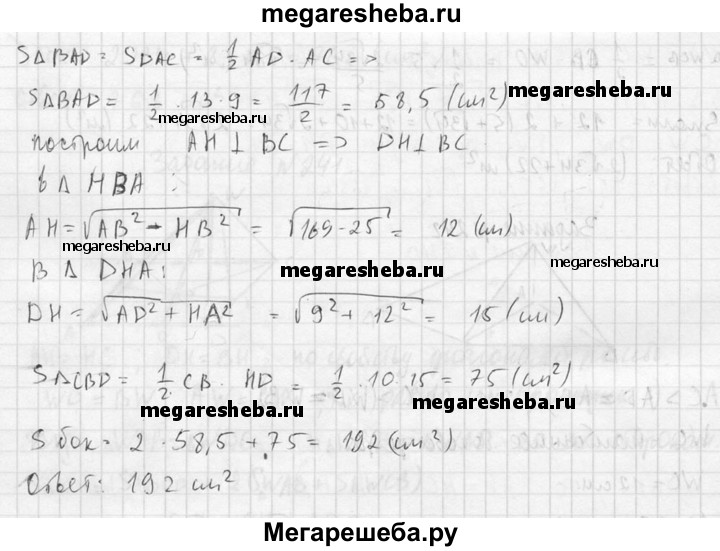 megaresheba.ru
S∆BAD = SDAC = 1/2 AD · AC =>
S∆BAD = 1/2 · 13 · 9 = 117/2 = 58,5 (см²)
megaresheba.ru
megaresheba.ru
построим AH ⊥ BC => DH ⊥ BC
в ∆ HBA :
AH = √(AB² - HB²) = √(169 - 25) = 12 (см)
megaresheba.ru
megaresheba.ru
megaresheba.ru
В ∆ DHA:
DH = √(AD² + HA²) = √(9² + 12²) = 15 (см)
S∆CBD = 1/2 CB · HD = 1/2 · 10 · 15 = 75 (см²)
megaresheba.ru
megaresheba.ru
Sбок = 2 · 58,5 + 75 = 192 (см²)
Ответ: 192 см²
Мегарешеба.ру